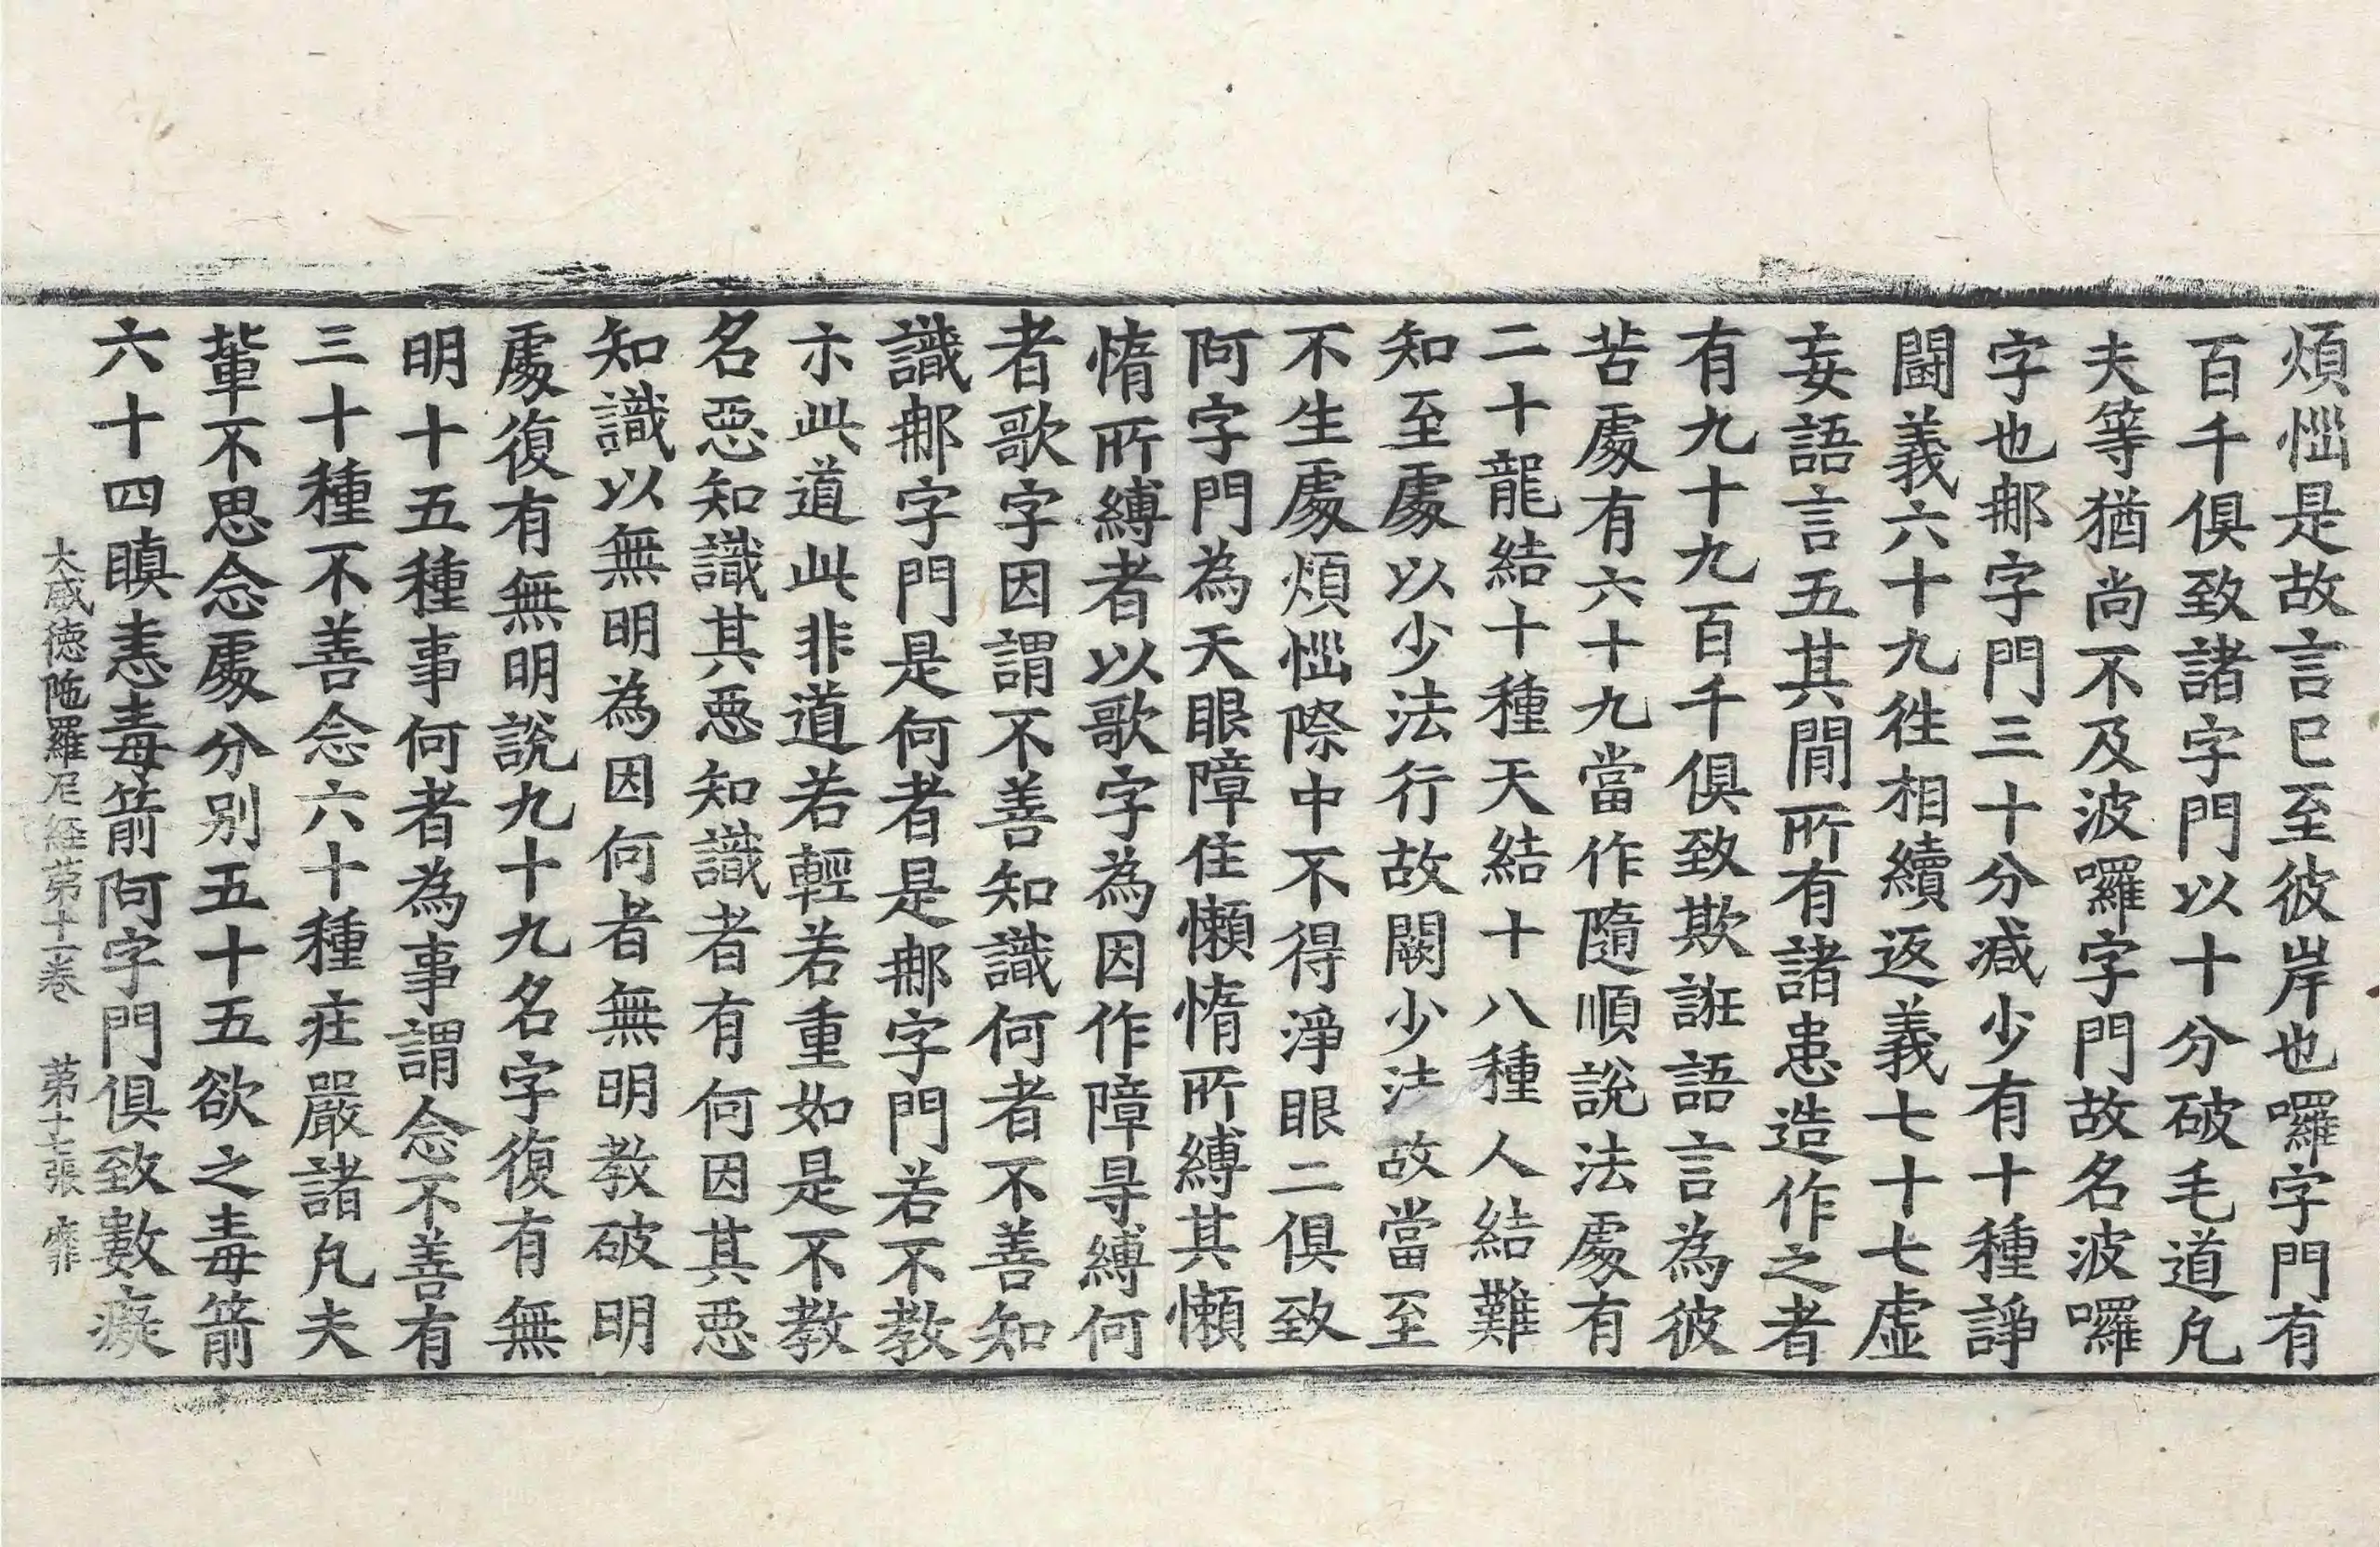 煩惱是故言巳至彼岸也囉字門有
百千俱致諸字門以十分破毛道凡
夫等猶尚不及波囉字門故名波囉
字也那字門三十分减少有十種諍
鬪義六十九徃相續返義七十七虛
妄語言五其閒所有諸患造作之者
有九十九百千俱致欺誑語言為彼
苦處有六十九當作隨順說法處有
二十龍結十種天結十八種人結難
知至處以少法行故闕少法故當至
不生處煩惱際中不得淨眼二俱致
阿字門為天眼障住懶惰所縛其懶
惰所縛者以歌字為因作障㝵縛何
者歌字因謂不善知識何者不善知
識那字門是何者是那字門若不教
示此道此非道若輕若重如是不教
名惡知識其惡知識者有何因其惡
知識以無明為因何者無明教破明
處復有無明說九十九名字復有無
明十五種事何者為事謂念不善有
三十種不善念六十種疰嚴諸凡夫
輩不思念處分别五十五欲之毒箭
六十四瞋恚毒箭阿字門俱致數癡
大威德陁羅尼経苐十一卷　苐十七張